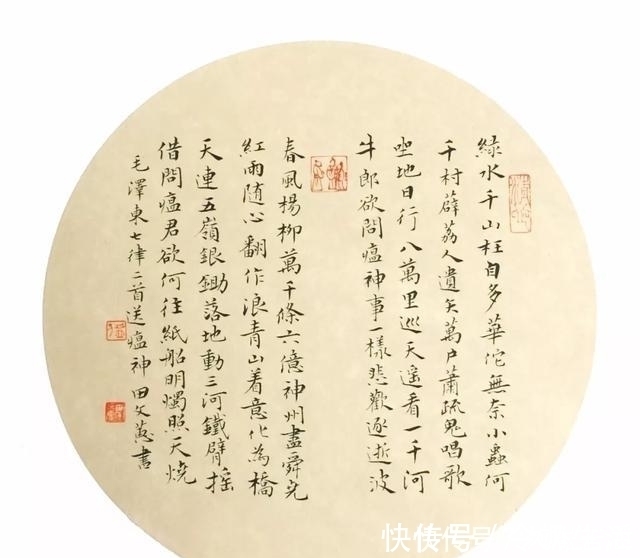 緑水千山枉自多華佗無奈小蟲何
千村薜荔人遺矢萬户蕭疏鬼唱歌
坐地日行八萬里巡天遥看一千河
牛郎欲問瘟神事一樣悲歡逐逝波
春風楊柳萬千條六億神州盡舜尭
紅雨随心翻作浪青山着意化為橋
天連五嶺銀鋤落地動三河鐵臂摇
借問瘟君欲何往紙船明燭照天燒
毛澤東七律二首送瘟神 田文蕙書